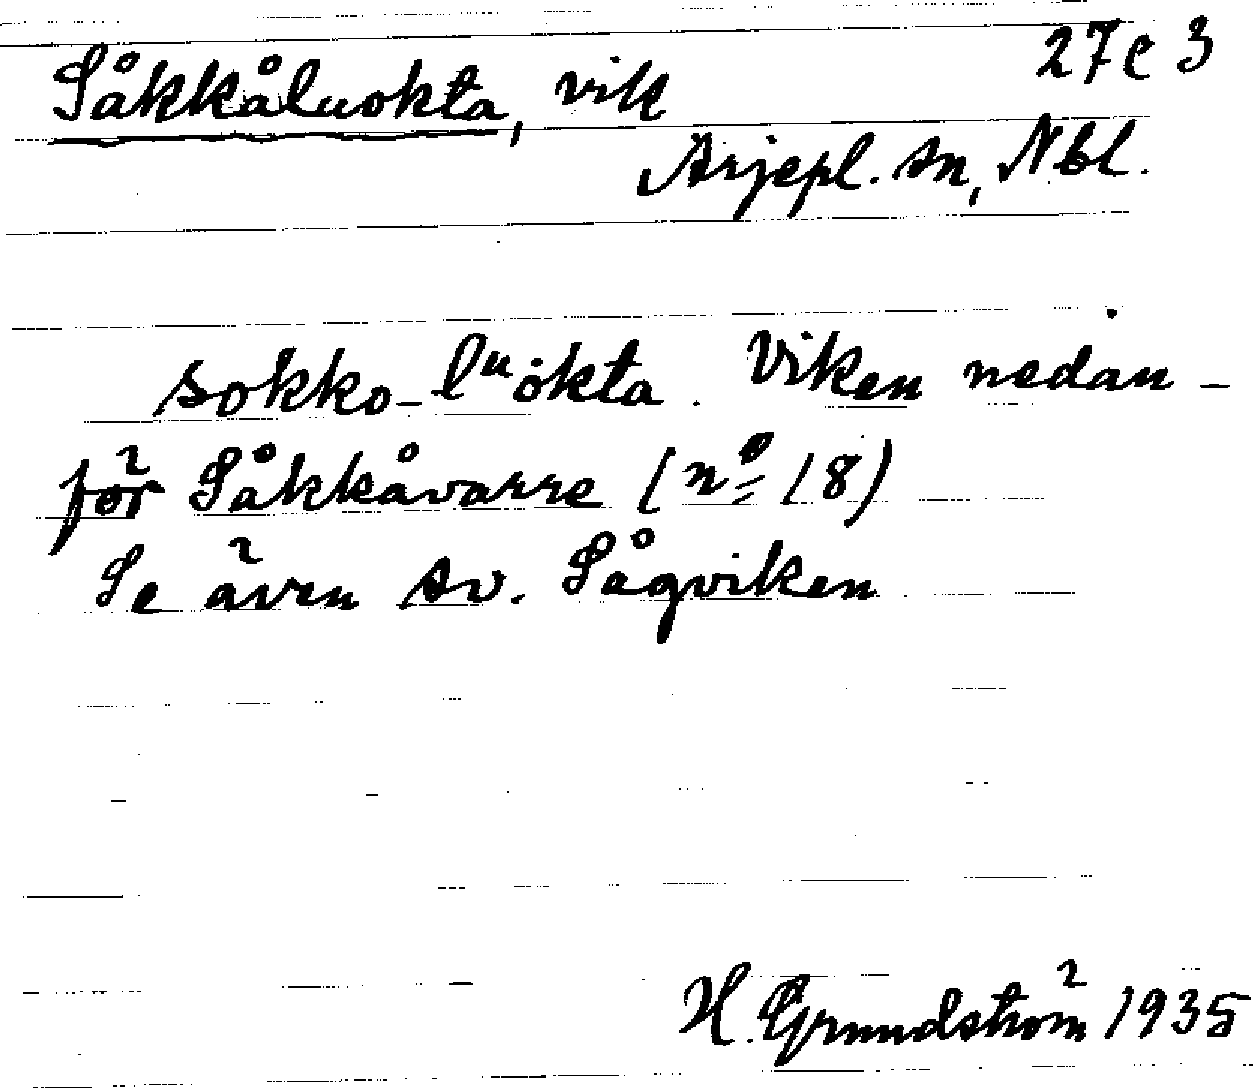 Såkkåluokta, vik 27 c 3
Arjepl. sn, Nbl.
sokko-lᵘȯkta. Viken nedan-
för Såkkåvarre (nº 18)
Se även sv. Sågviken
H. Grundström 1935